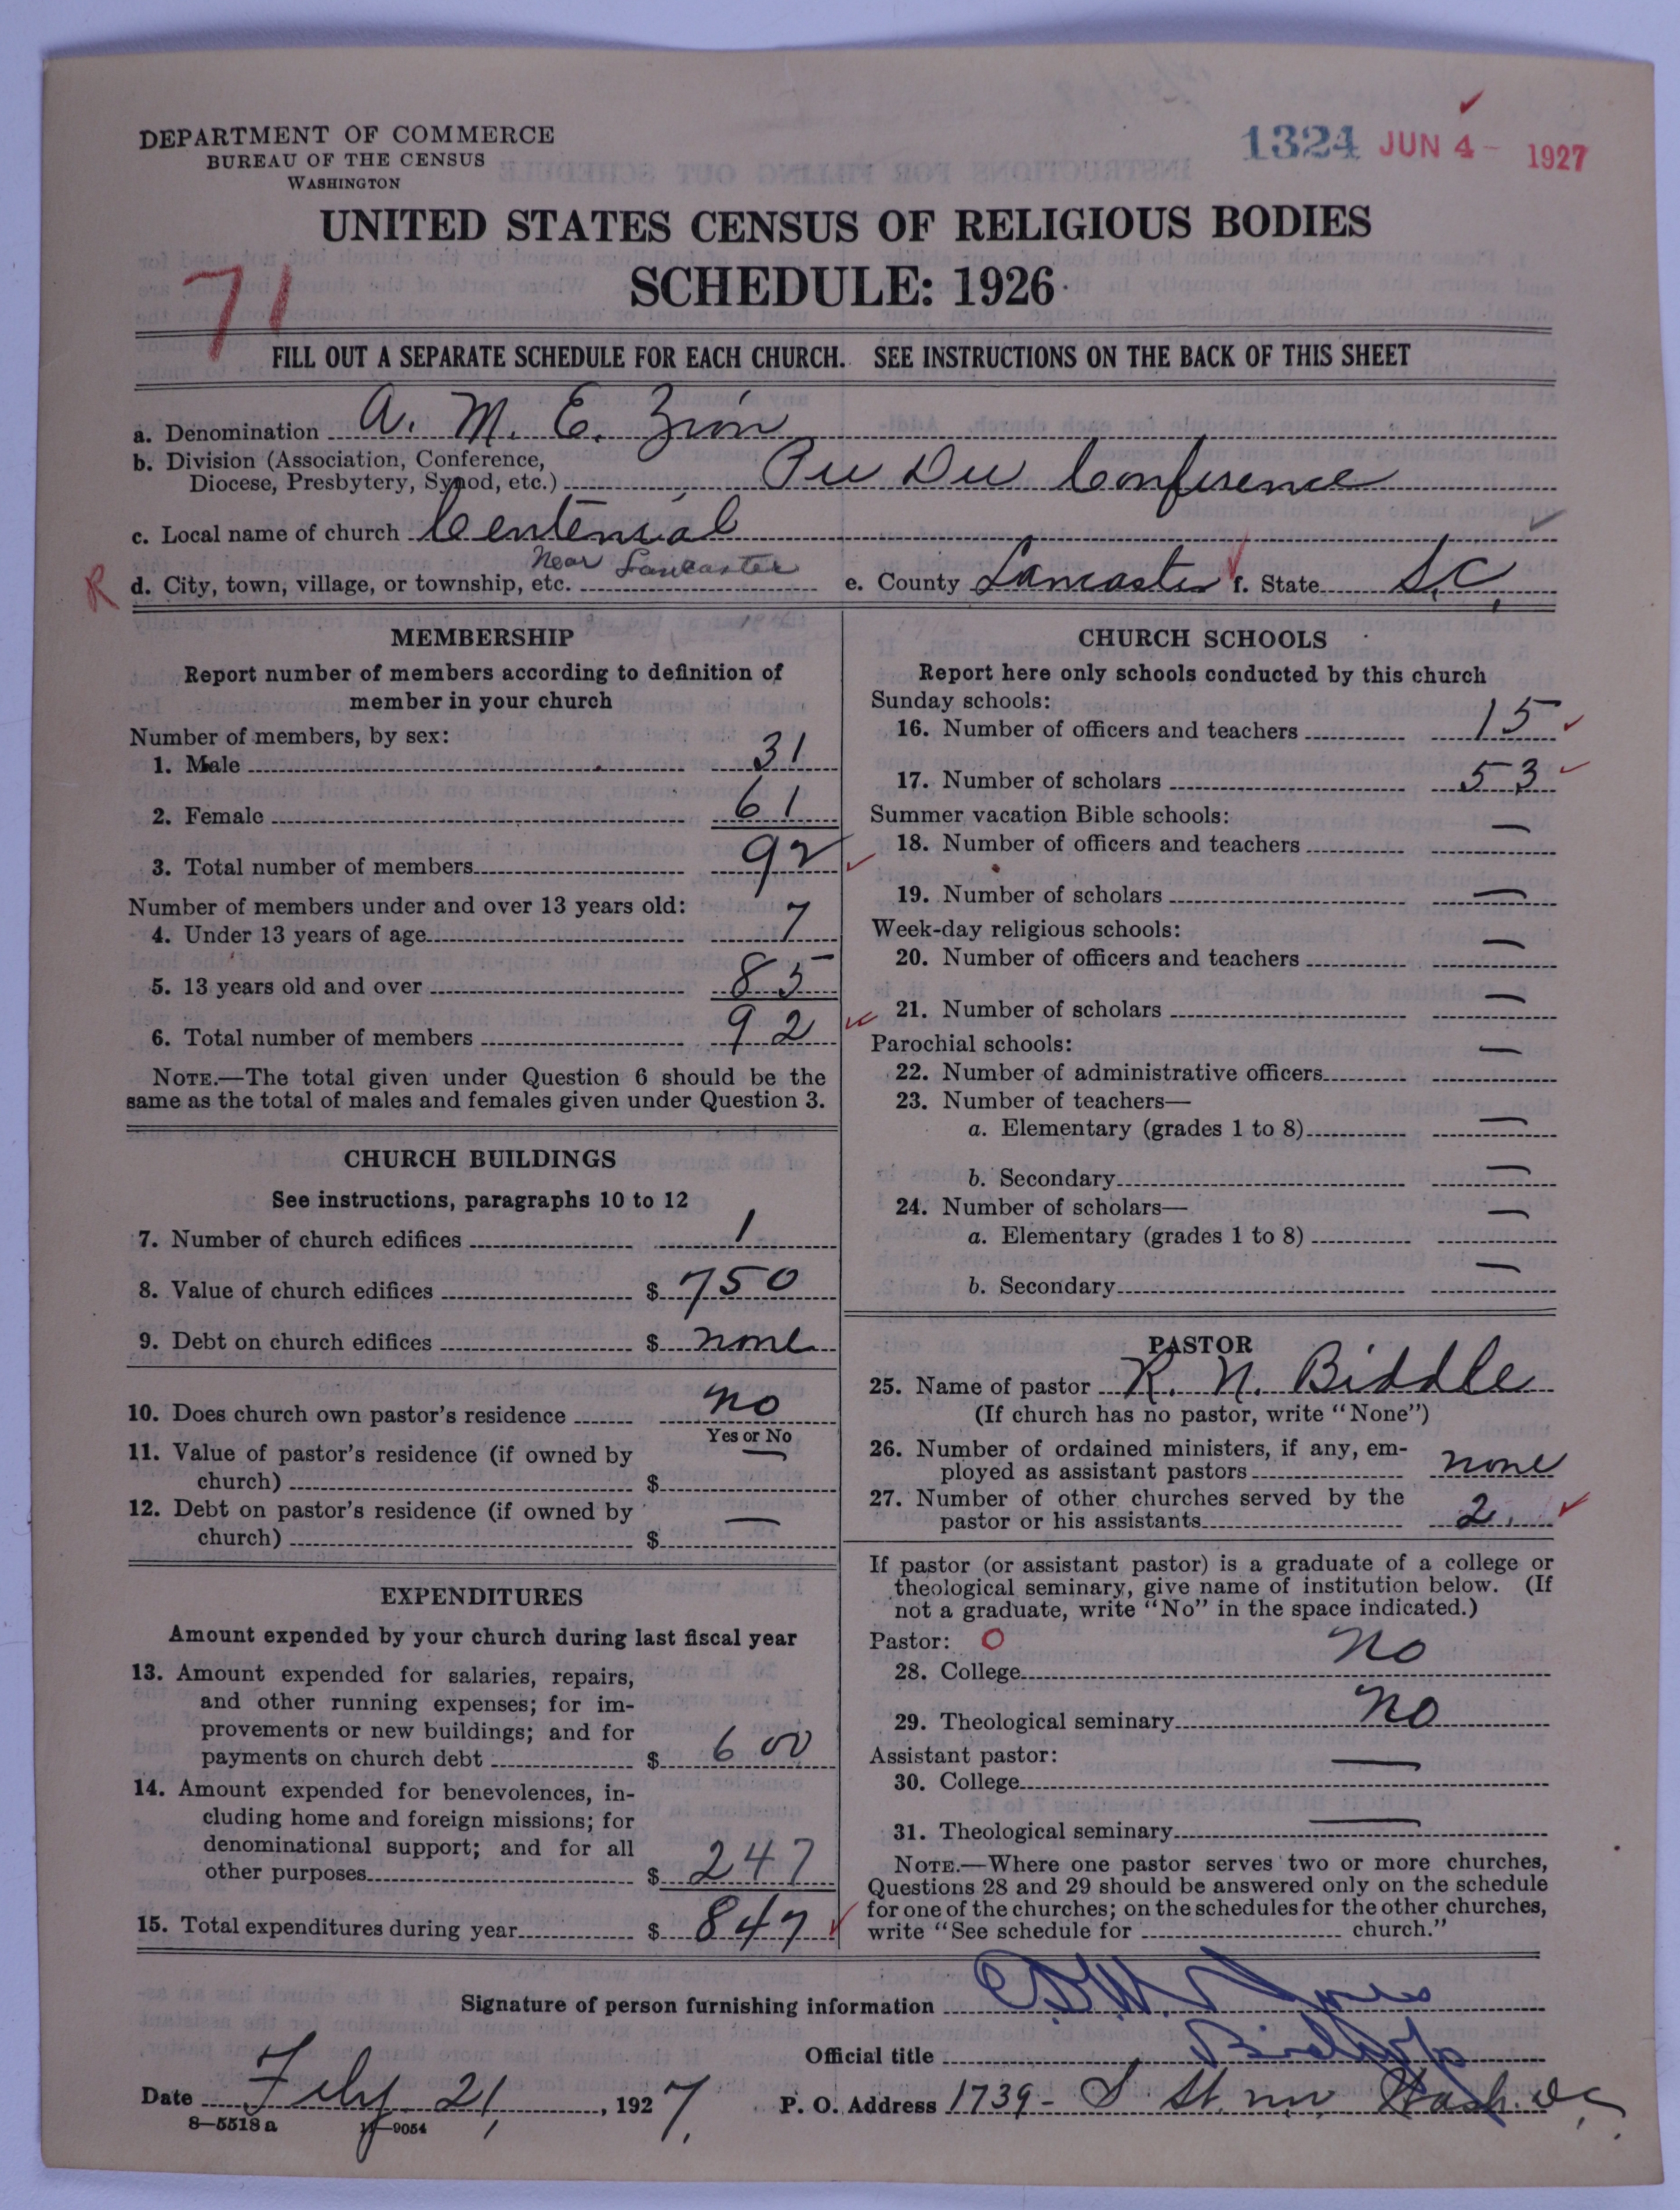 DEPARTMENT OF COMMERCE
BUREAU OF THE CENSUS
WASHINGTON
1324 JUN 4 - 1927
UNITED STATES CENSUS OF RELIGIOUS BODIES
SCHEDULE: 1926
71
FILL OUT A SEPARATE SCHEDULE FOR EACH CHURCH. SEE INSTRUCTIONS ON THE BACK OF THIS SHEET
a. Denomination A. M. E. Zion
b. Division (Association, Conference,
Diocese, Presbytery, Synod, etc.) Pee Dee Conference
c. Local name of church Centennial
R d. City, town, village, or township, etc. Near Lancaster e. County Lancaster f. State S.C.
MEMBERSHIP
Report number of members according to definition of
member in your church
Number of members, by sex:
1. Male 31
2. Female 61
3. Total number of members 92
Number of members under and over 13 years old:
4. Under 13 years of age 7
5. 13 years old and over 85
6. Total number of members 92
NOTE.—The total given under Question 6 should be the
same as the total of males and females given under Question 3.
CHURCH BUILDINGS
See instructions, paragraphs 10 to 12
7. Number of church edifices 1
8. Value of church edifices $ 750
9. Debt on church edifices $ none
10. Does church own pastor's residence no
Yes or No
11. Value of pastor's residence (if owned by
church) $ —
12. Debt on pastor's residence (if owned by
church) $ —
EXPENDITURES
Amount expended by your church during last fiscal year
13. Amount expended for salaries, repairs,
and other running expenses; for im-
provements or new buildings; and for
payments on church debt $ 600
14. Amount expended for benevolences, in-
cluding home and foreign missions; for
denominational support; and for all
other purposes $ 247
15. Total expenditures during year $ 847
CHURCH SCHOOLS
Report here only schools conducted by this church
Sunday schools:
16. Number of officers and teachers 15
17. Number of scholars 53
Summer vacation Bible schools:
18. Number of officers and teachers —
19. Number of scholars —
Week-day religious schools:
20. Number of officers and teachers —
21. Number of scholars —
Parochial schools:
22. Number of administrative officers —
23. Number of teachers—
a. Elementary (grades 1 to 8) —
b. Secondary —
24. Number of scholars—
a. Elementary (grades 1 to 8) —
b. Secondary —
PASTOR
25. Name of pastor R. N. Biddle
(If church has no pastor, write "None")
26. Number of ordained ministers, if any, em-
ployed as assistant pastors none
27. Number of other churches served by the
pastor or his assistants 2
If pastor (or assistant pastor) is a graduate of a college or
theological seminary, give name of institution below. (If
not a graduate, write "No" in the space indicated.)
Pastor: O
28. College no
29. Theological seminary no
Assistant pastor:
30. College —
31. Theological seminary —
NOTE.—Where one pastor serves two or more churches,
Questions 28 and 29 should be answered only on the schedule
for one of the churches; on the schedules for the other churches,
write "See schedule for church."
Signature of person furnishing information Jones
Official title Bishop
Date Feby 21, 1927. P. O. Address 1739 - S St. nw. Wash. D.C.
8—5518 a 11—9054